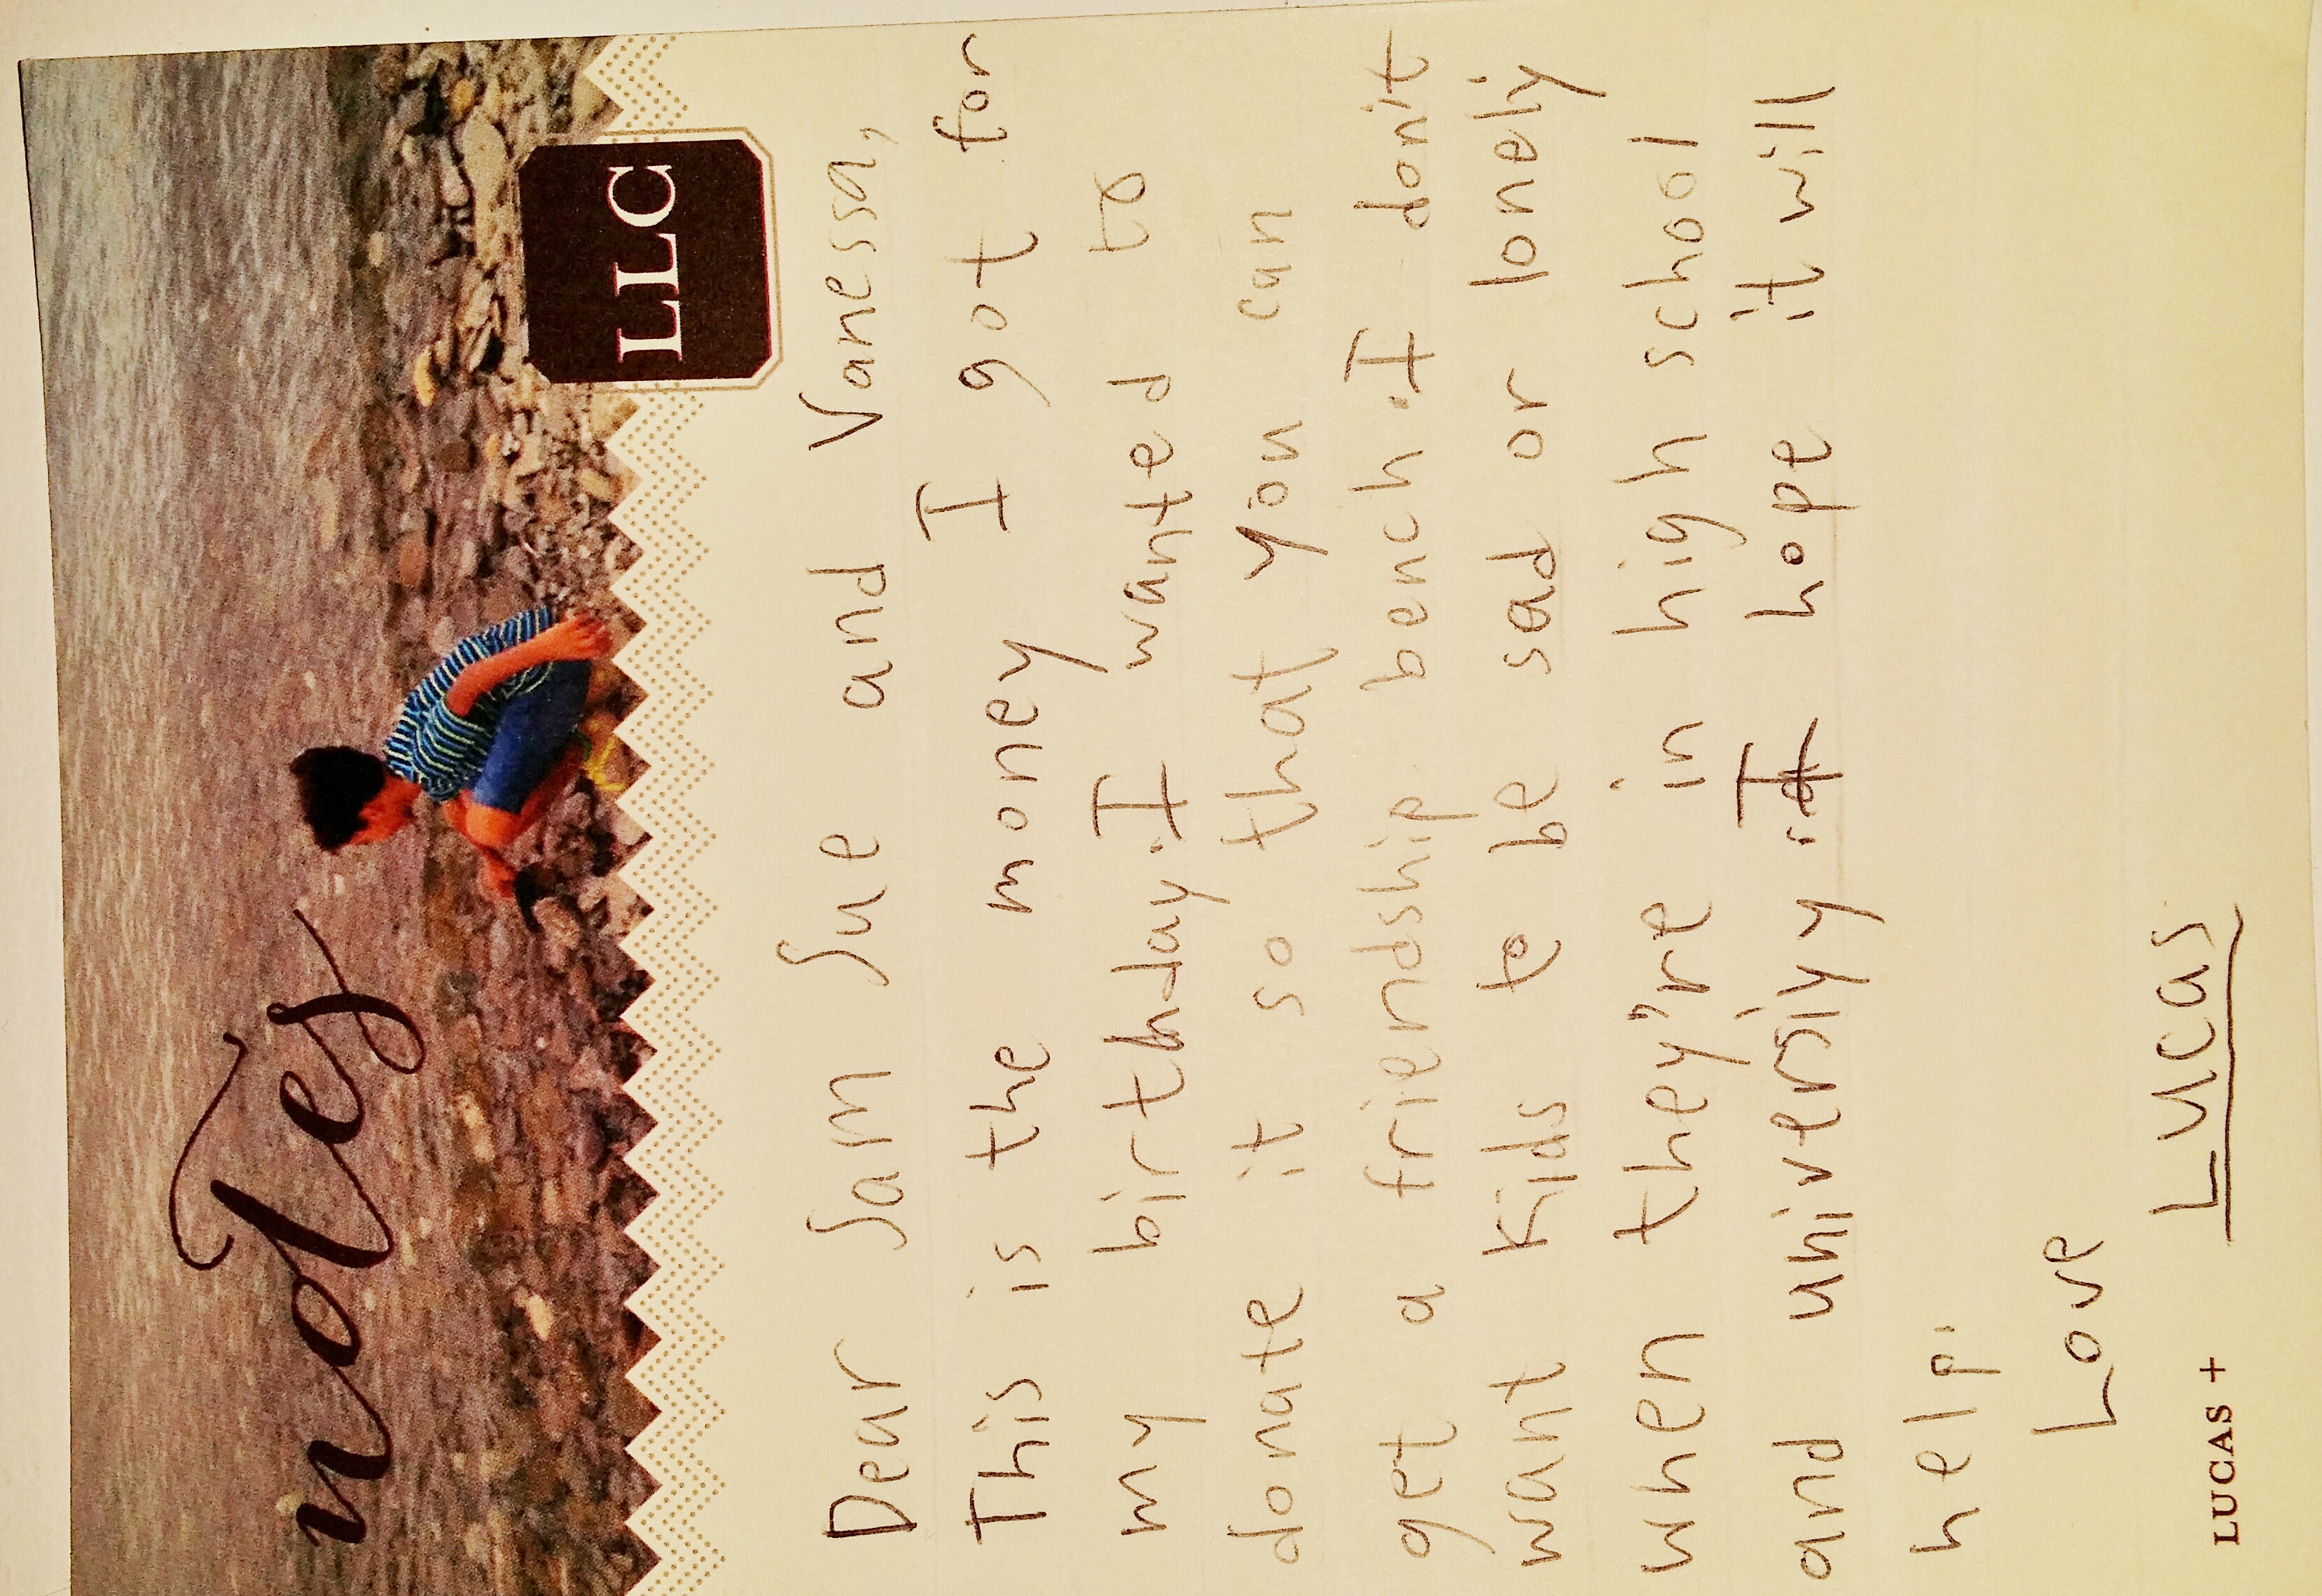 notes
LLC
Dear Sam Sue and Vanessa,
This is the money I got for
my birthday. I wanted to
donate it so that you can
get a friendship bench. I don't
want kids to be sad or lonely
when they're in high school
and universiy. I hope it will
help.
Love
Lucas
LUCAS +